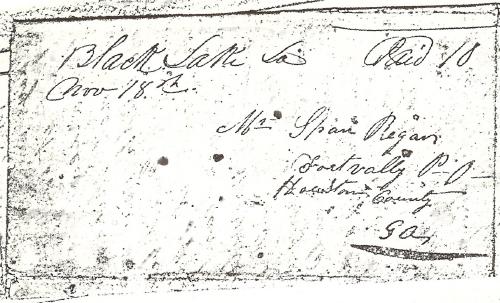 Black Lake La Paid 10
Nov 18th
Mr Span Regan
Fortvally P. O
Houston County
Ga,